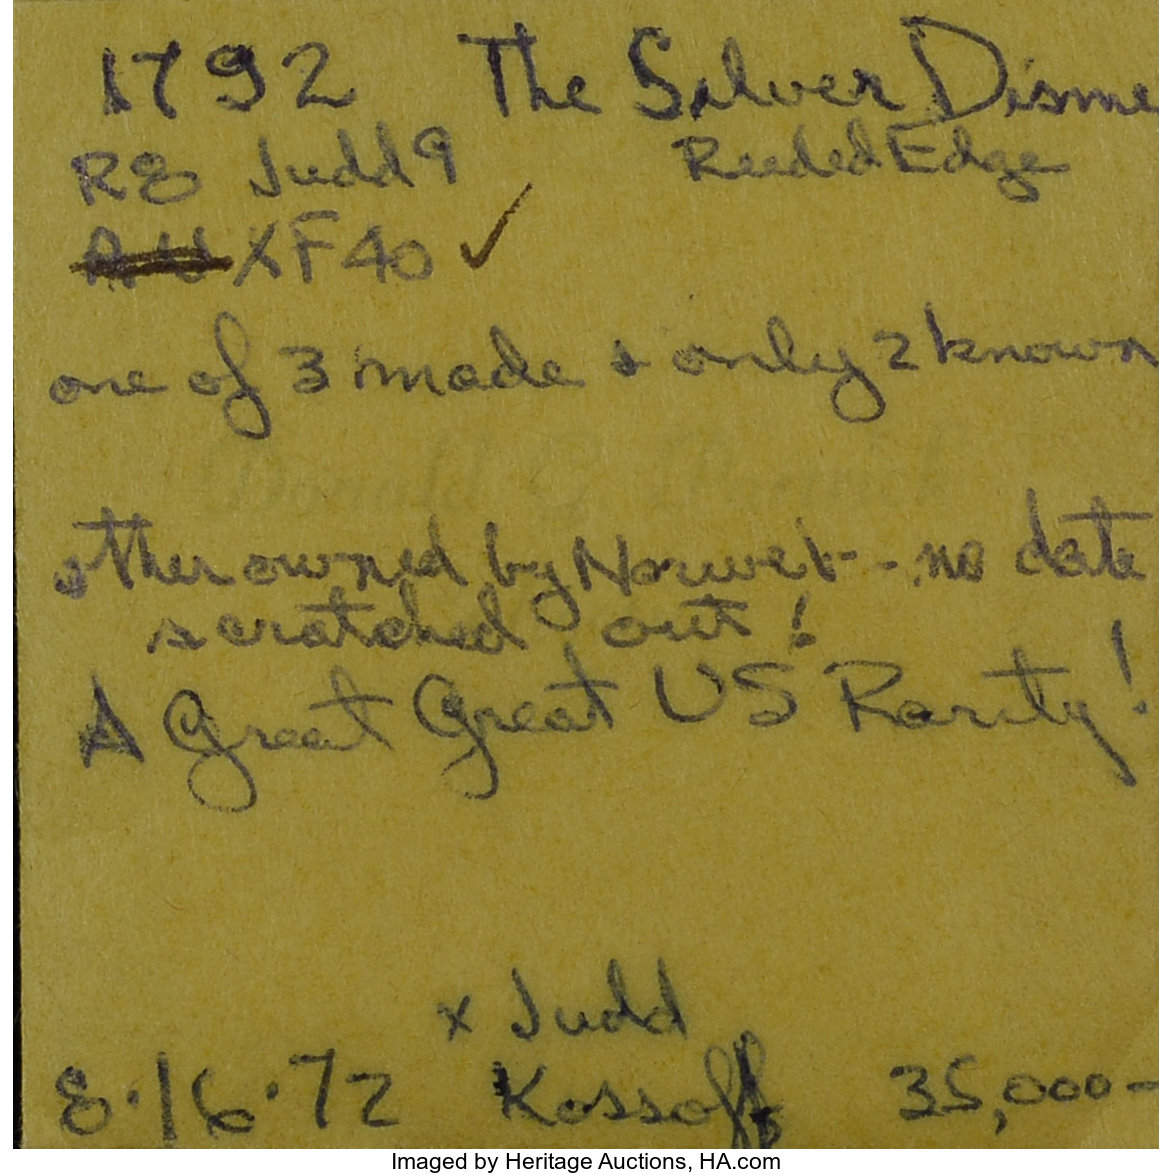 1792 The Silver Disme
R8 Judd 9 Reeded Edge
AU XF40 ✓
one of 3 made & only 2 known
other owned by Norweb - no date
scratched out!
A Great Great US Rarity!
x Judd
8·16·72 Kossoff 35,000-
Imaged by Heritage Auctions, HA.com